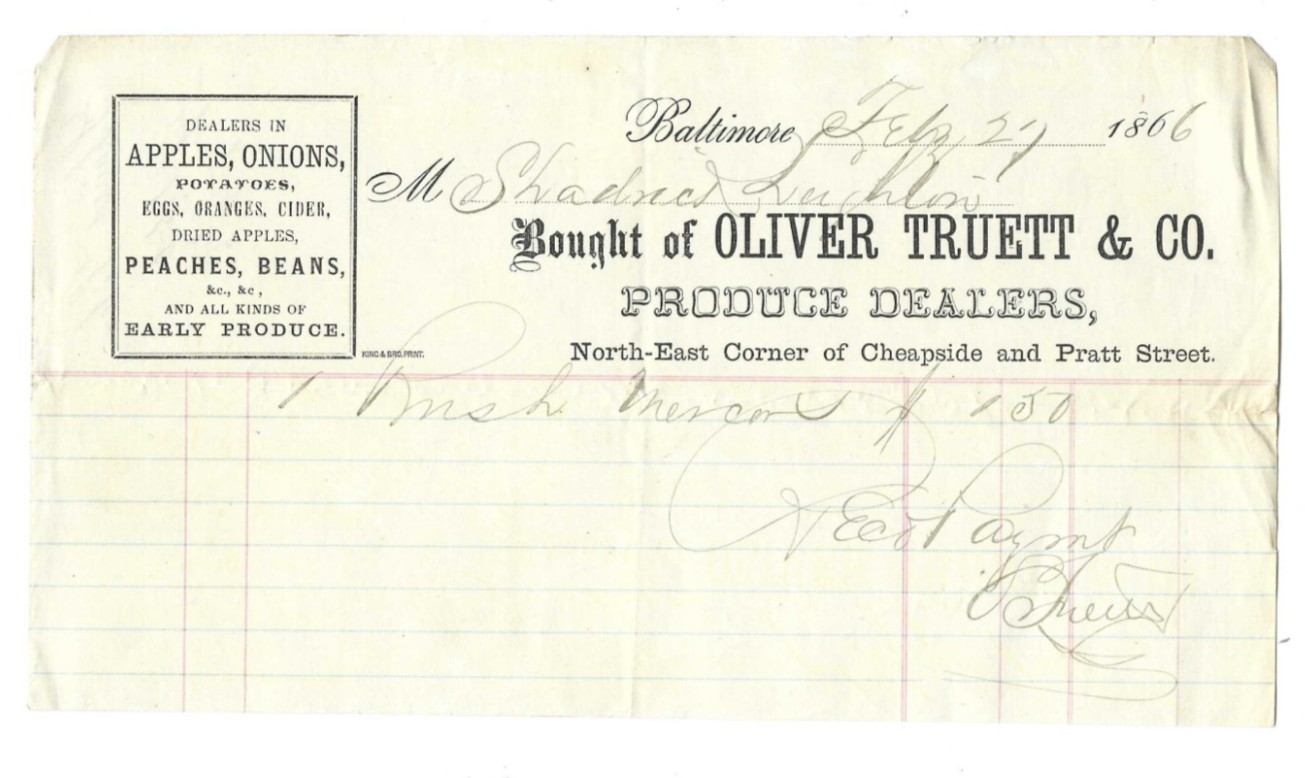 DEALERS IN
APPLES, ONIONS,
POTATOES,
EGGS, ORANGES, CIDER,
DRIED APPLES,
PEACHES, BEANS,
&c., &c,
AND ALL KINDS OF
EARLY PRODUCE.
KING & BRO. PRINT.
Baltimore Feby 27 1866
M Shadrick
Bought of OLIVER TRUETT & CO.
PRODUCE DEALERS,
North-East Corner of Cheapside and Pratt Street.
1 Bush Mercer $ 1 50
Recd Paymt